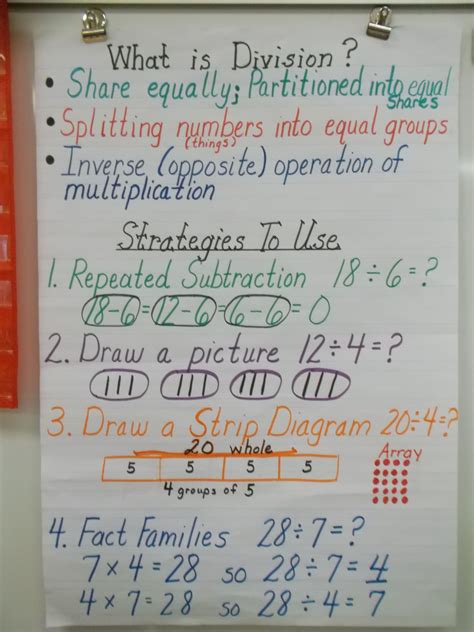 What is Division?
• Share equally; Partitioned into equal
shares
• Splitting numbers into equal groups
(things)
• Inverse (opposite) operation of
multiplication
Strategies To Use
1. Repeated Subtraction 18÷6=?
18-6=12-6=6-6=0
2. Draw a picture 12÷4=?
3. Draw a Strip Diagram 20÷4=?
20 whole
Array
5 5 5 5
4 groups of 5
4. Fact Families 28÷7=?
7×4=28 so 28÷7=4
4×7=28 so 28÷4=7